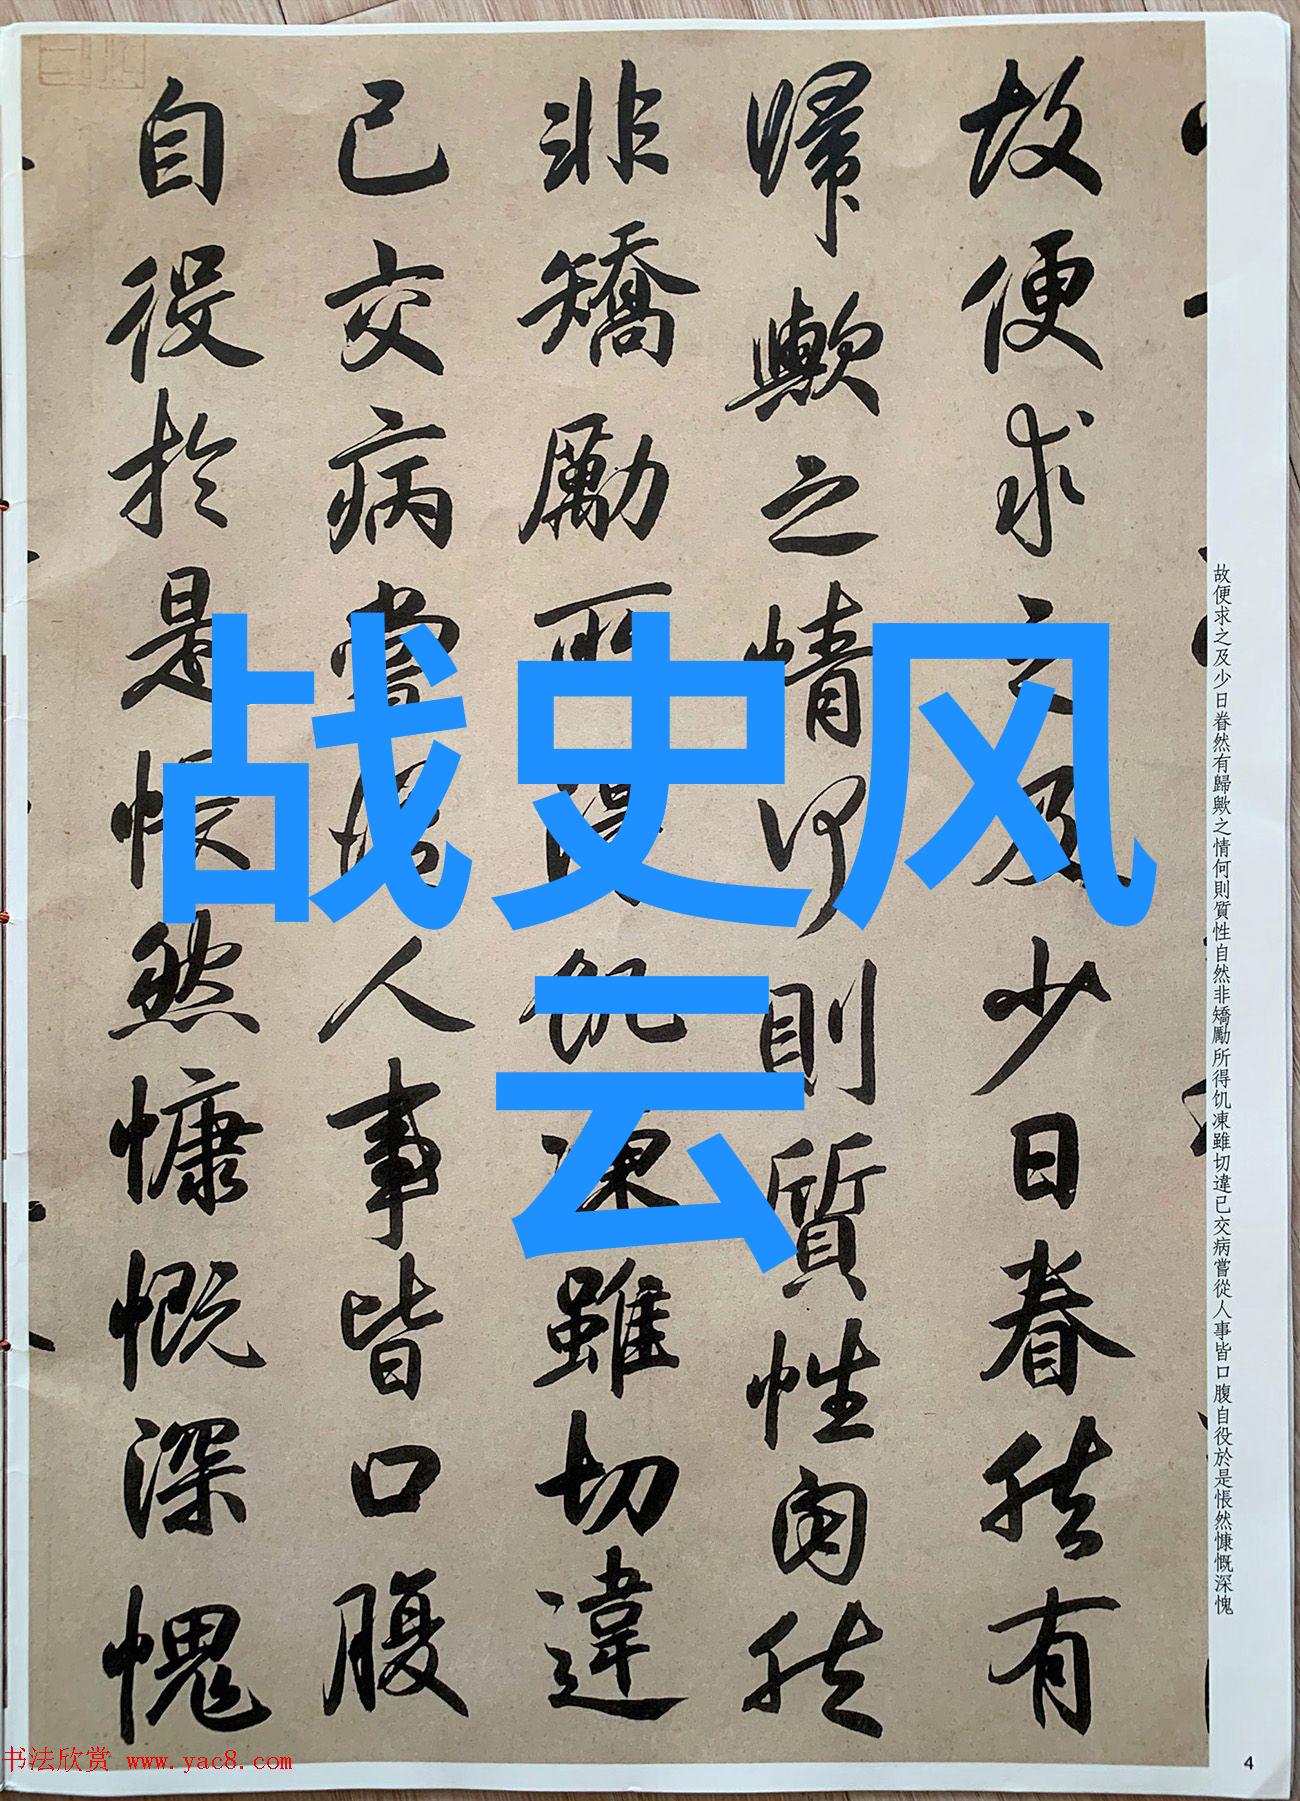 故便求之及少日眷然有
歸歟之情何則質性自然
非矯勵所得饥凍雖切違
已交病嘗從人事皆口腹
自役於是悵然慷慨深愧
战史风
云
故便求之及少日眷然有歸歟之情何則質性自然非矯勵所得饥凍雖切違已交病嘗從人事皆口腹自役於是悵然慷慨深愧
书法欣赏 www.yac8.com
4